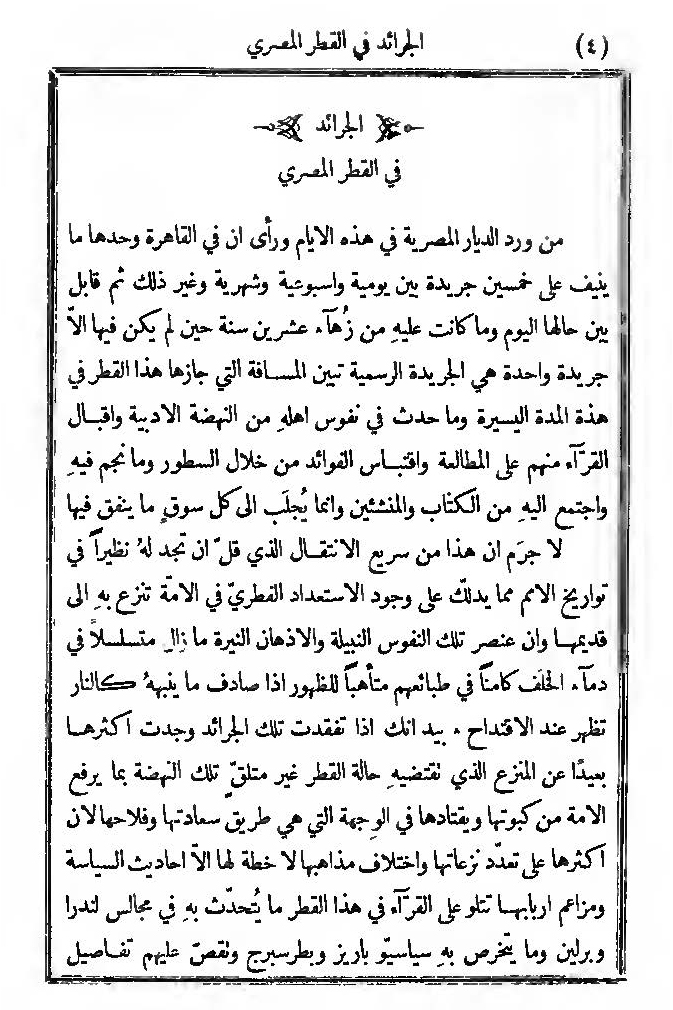 (٤) الجرائد في القطر المصري
الجرائد
في القطر المصري
من ورد الديار المصرية في هذه الايام ورأى ان في القاهرة وحدها ما
ينيف على خمسين جريدة بين يومية واسبوعية وشهرية وغير ذلك ثم قابل
بين حالها اليوم وما كانت عليهِ من زُهآء عشرين سنة حين لم يكن فيها الّا
جريدة واحدة هي الجريدة الرسمية تبين المسافة التي جازها هذا القطر في
هذة المدة اليسيرة وما حدث في نفوس اهلهِ من النهضة الادبية واقبال
القرّآء منهم على المطالعة واقتباس الفوائد من خلال السطور وما نجم فيهِ
واجتمع اليهِ من الكتّاب والمنشئين وانما يُجلَب الى كل سوقٍ ما ينفق فيها
لا جرَم ان هذا من سريع الانتقال الذي قلّ ان تجد لهُ نظيراً في
تواريخ الامم مما يدلّك على وجود الاستعداد الفطريّ في الامّة تنزع بهِ الى
قديمها وان عنصر تلك النفوس النبيلة والاذهان النيرة ما زال متسلسلاً في
دمآء الخلَف كامناً في طبائعهم متأهباً للظهور اذا صادف ما ينبههُ كالنار
تظهر عند الاقتداح ٠ بيد انك اذا تفقدت تلك الجرائد وجدت اكثرها
بعيدًا عن المنزع الذي تقتضيهِ حالة القطر غير متلقٍّ تلك النهضة بما يرفع
الامة من كبوتها ويقتادها في الوجهة التي هي طريق سعادتها وفلاحها لان
اكثرها على تعدّد نزعاتها واختلاف مذاهبها لا خطة لها الّا احاديث السياسة
ومزاعم اربابها تتلو على القرّآء في هذا القطر ما يُتحدّث بهِ في مجالس لندرا
وبرلين وما يتخرص بهِ سياسيّو باريز وبطرسبرج وتقصّ عليهم تفاصيل